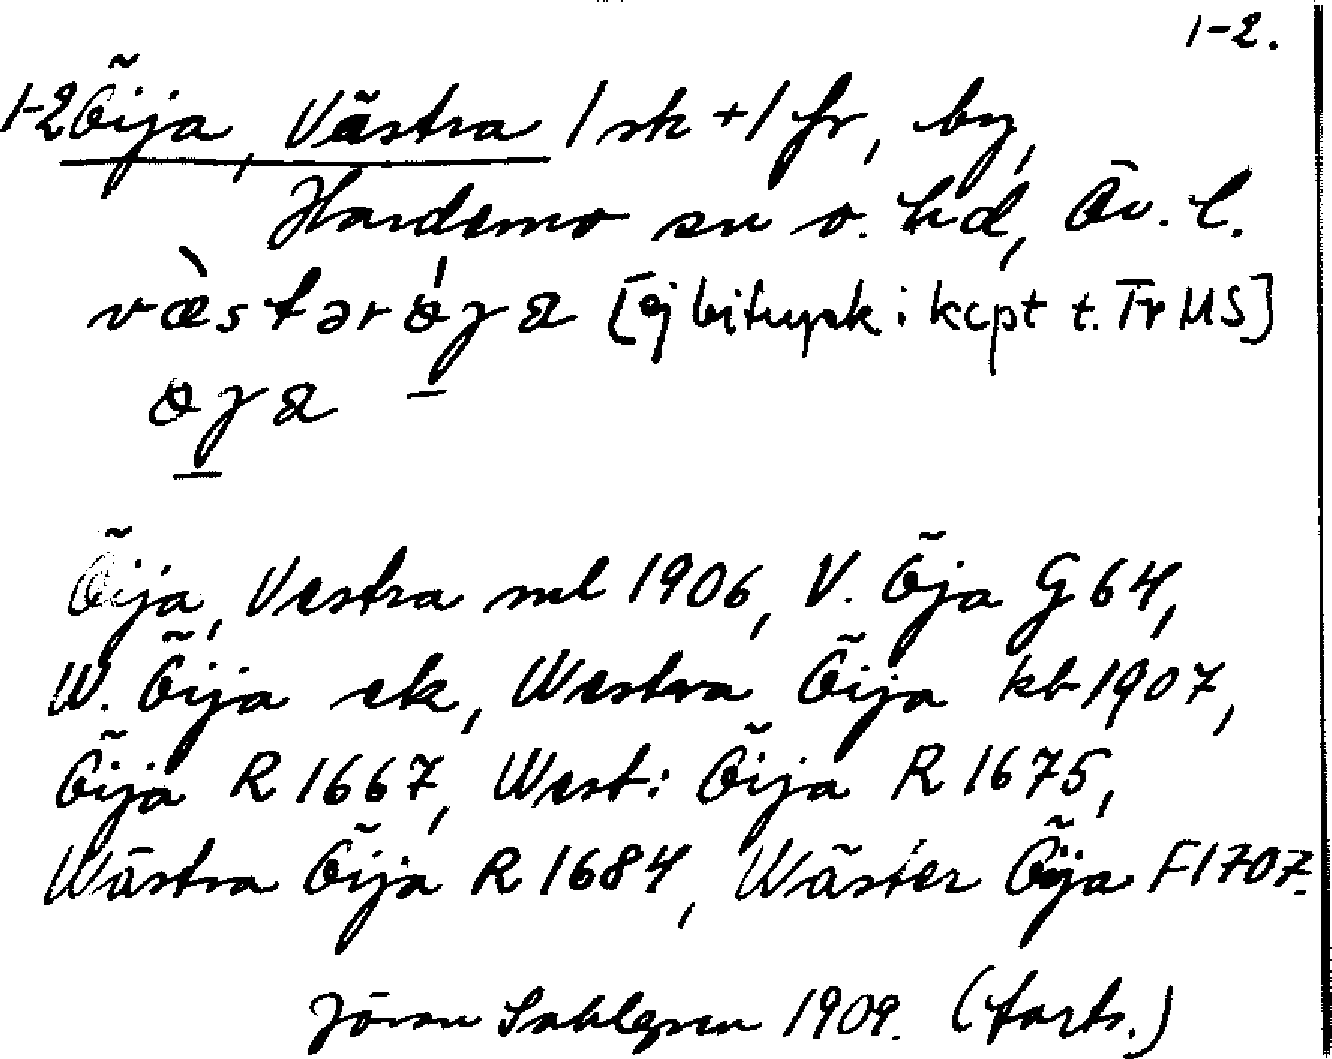 1-2.
1-2 Öija, Västra 1 sk + 1 fr, by,
Hardemo sn o. hd, Ör. l.
væstərøja [ej bitryck i kcpt t. Fr MS]
øja
Öija, Vestra ml 1906, V. Öja G 64,
W. Öija ek, Westra Öija kb 1907,
Öija R 1667, West: Öija R 1675,
Wästra Öija R 1684, Wäster Öija F 1707.
Jöran Sahlgren 1909. (forts.)